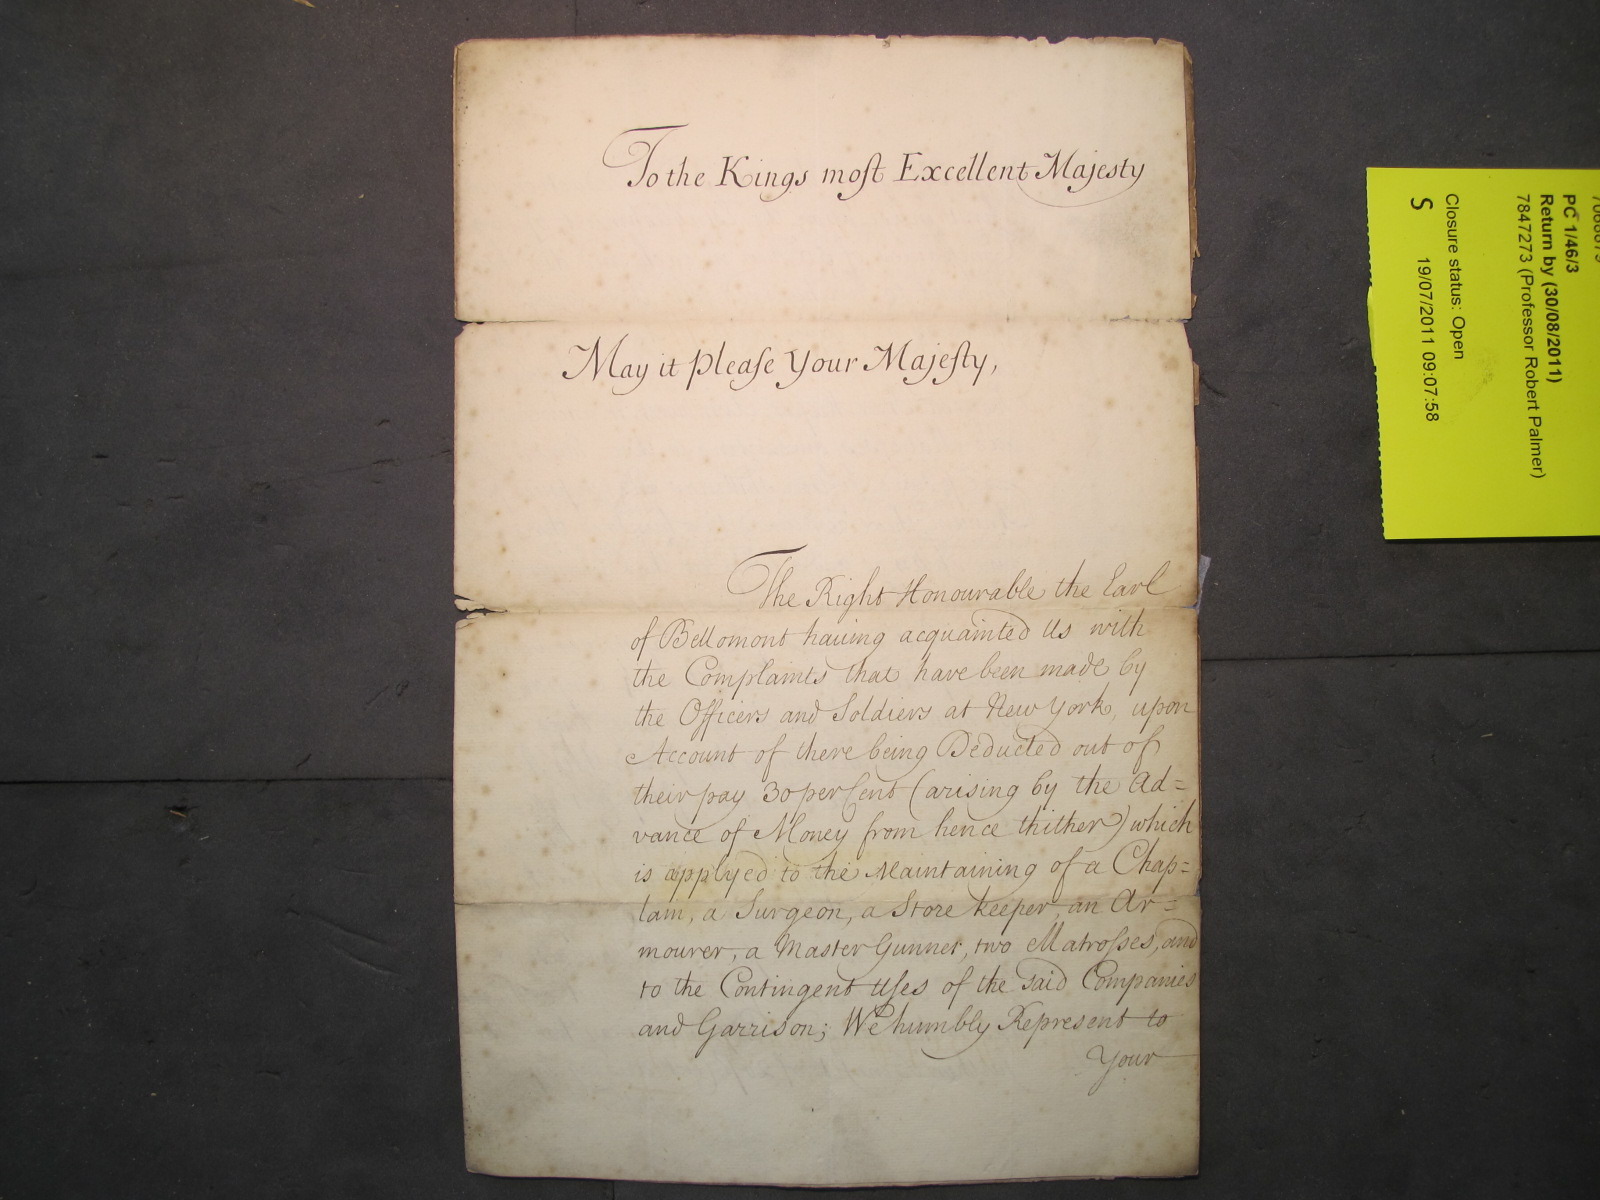 To the Kings most Excellent Majesty
May it please Your Majesty,
The Right Honourable the Earl
of Bellomont having acquainted Us with
the Complaints that have been made by
the Officers and Soldiers at New York, upon
Account of there being Deducted out of
their pay 30 per Cent (arising by the Ad=
vance of Money from hence thither) which
is applyed to the Maintaining of a Chap=
lain, a Surgeon, a Store keeper, an Ar=
mourer, a Master Gunner, two Matrosses, and
to the Contingent Uses of the said Companies
and Garrison; We humbly Represent to
Your
PC 1/46/3
Return by (30/08/2011)
7847273 (Professor Robert Palmer)
Closure status: Open
S 19/07/2011 09:07:58